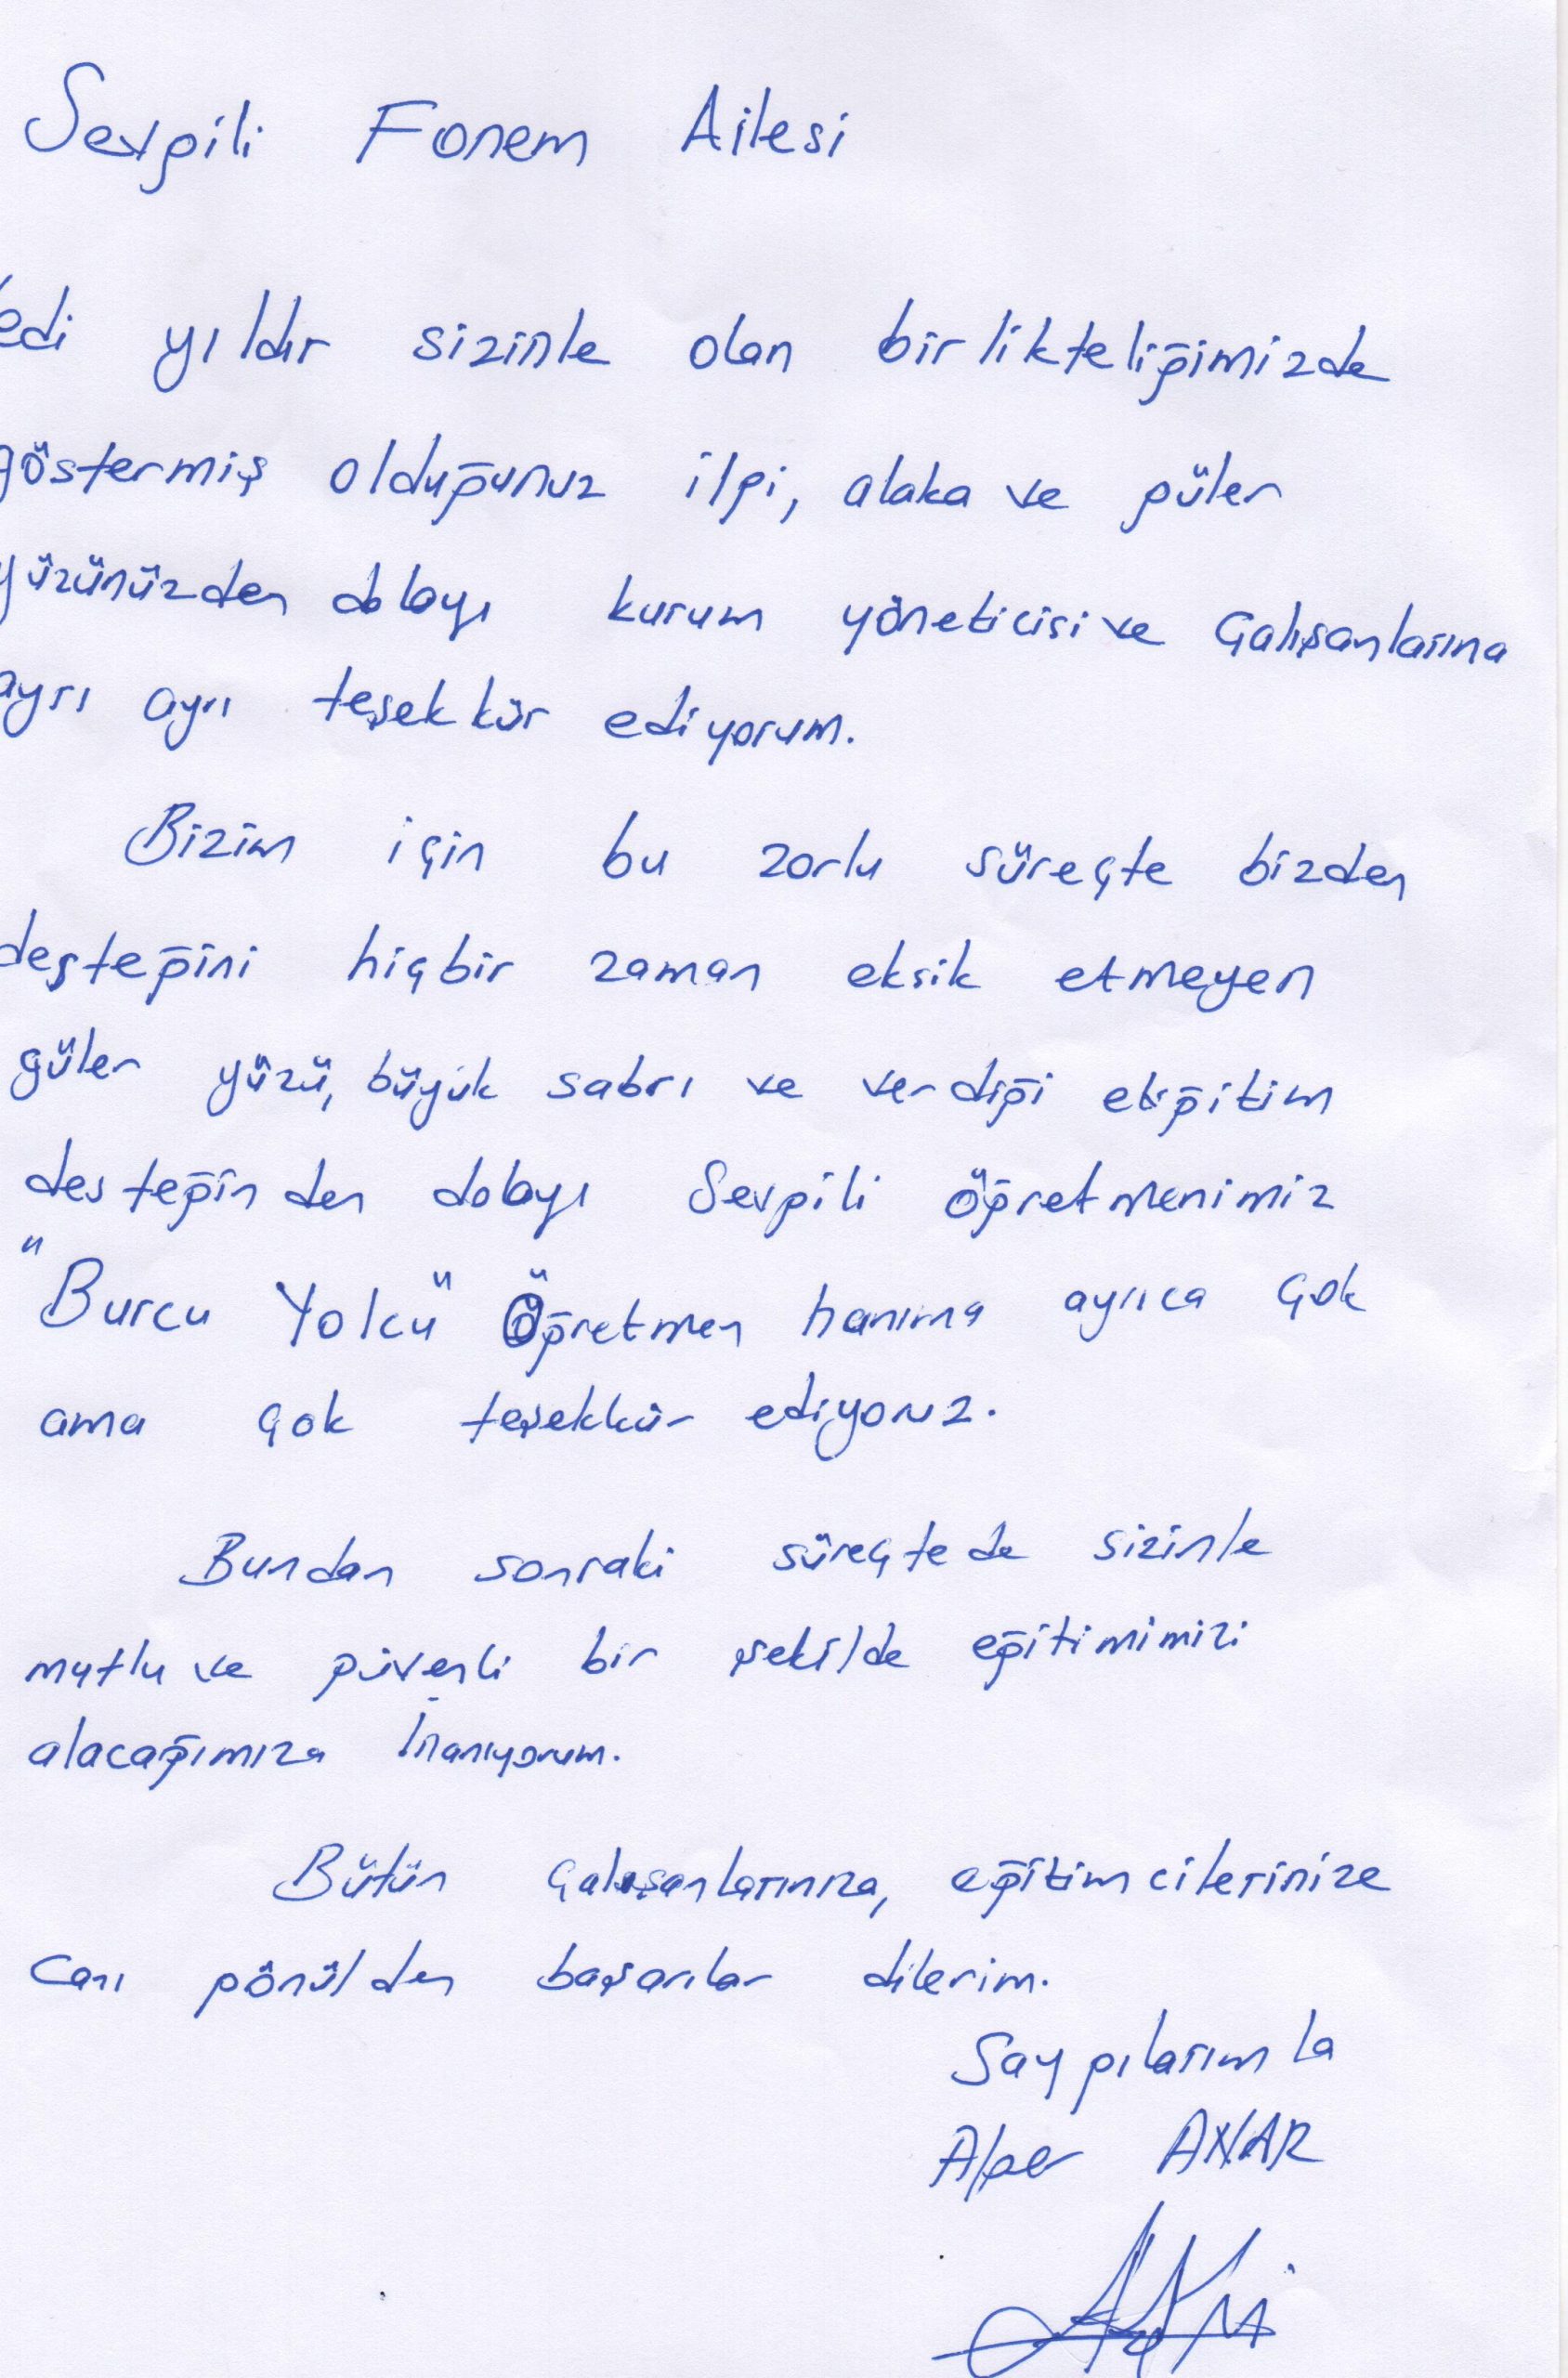 Sevgili Fonem Ailesi
Yedi yıldır sizinle olan birlikteliğimizde
göstermiş olduğunuz ilgi, alaka ve güler
yüzünüzden dolayı kurum yöneticisi ve çalışanlarına
ayrı ayrı teşekkür ediyorum.
Bizim için bu zorlu süreçte bizden
desteğini hiçbir zaman eksik etmeyen
güler yüzü, büyük sabrı ve verdiği eğitim
desteğinden dolayı Sevgili öğretmenimiz
"Burcu Yolcu" Öğretmen hanıma ayrıca çok
ama çok teşekkür ediyoruz.
Bundan sonraki süreçtede sizinle
mutlu ve güvenli bir şekilde eğitimimizi
alacağımıza İnanıyorum.
Bütün çalışanlarınıza, eğitimcilerinize
Canı gönülden başarılar dilerim.
Saygılarımla
Alper ANAR